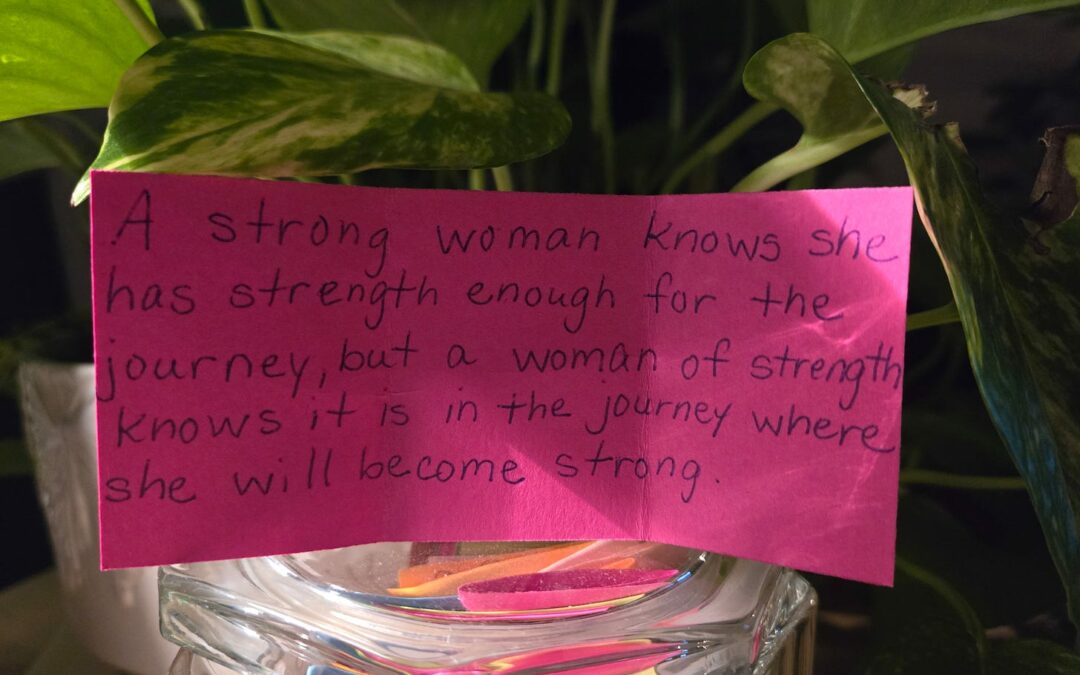 A strong woman knows she
has strength enough for the
journey, but a woman of strength
knows it is in the journey where
she will become strong.